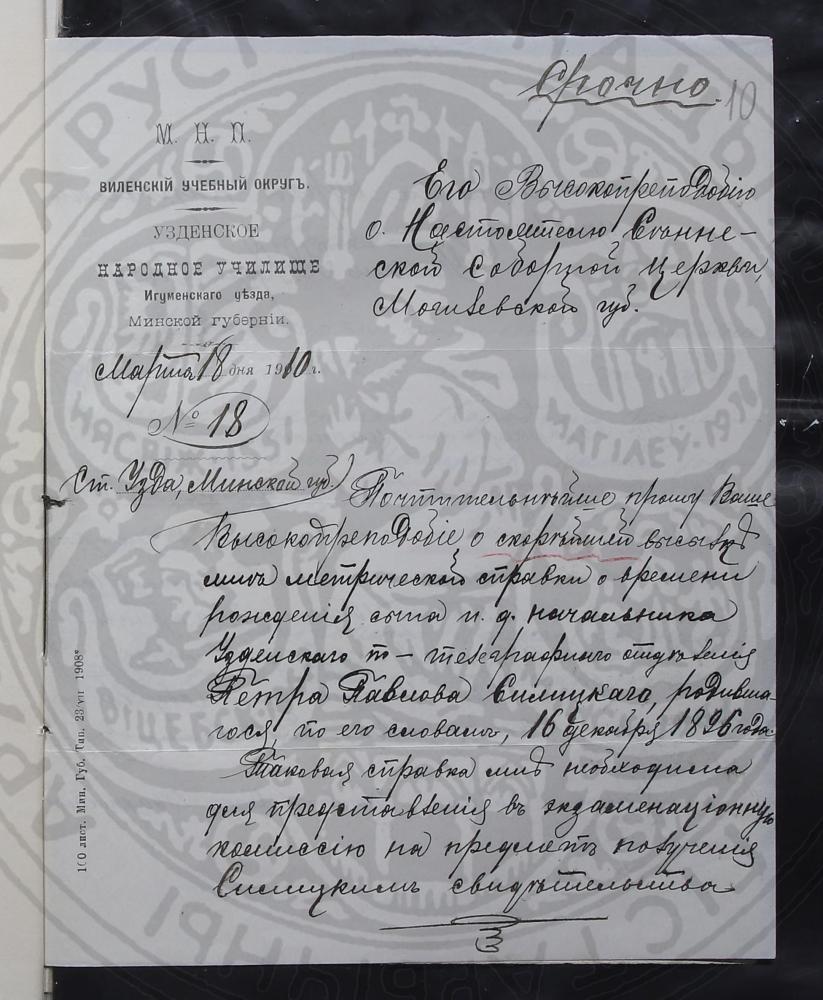 Срочно.
10
М. Н. П.
ВИЛЕНСКІЙ УЧЕБНЫЙ ОКРУГЪ.
УЗДЕНСКОЕ
НАРОДНОЕ УЧИЛИЩЕ
Игуменскаго уѣзда,
Минской губерніи.
Марта 18 дня 1910 г.
№ 18
Ст. Узда, Минской губ.
Его Высокопреподобію
о. Настоятелю Сѣннен-
ской Соборной Церкви,
Могилевской губ.
Почтительнѣйше прошу Ваше
Высокопреподобіе о скорѣйшей высылкѣ
мнѣ метрической справки о времени
рожденія сына и. д. начальника
Узденскаго п-телеграфнаго отдѣленія
Петра Павлова Силицкаго, родивша-
гося, по его словамъ, 16 декабря 1896 года.
Таковая справка мнѣ необходима
для представленія въ экзаменаціонную
коммиссію на предметъ полученія
Силицкимъ свидѣтельства
100 лист. Мин. Губ. Тип. 23/VII 1908
БЕЛАРУСІ
МАГІЛЕЎ
ВІЦЕБСК